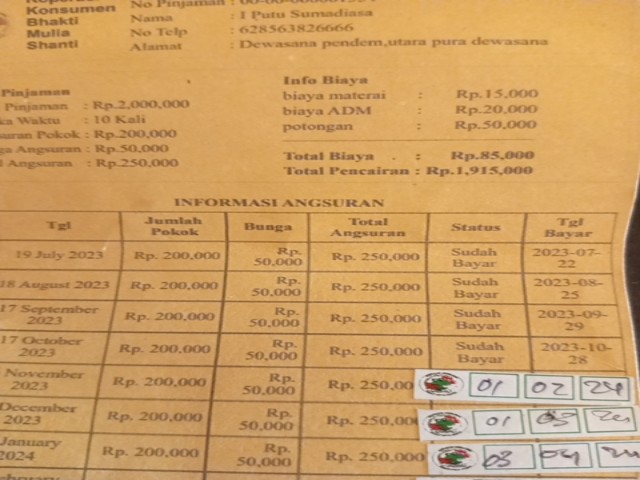 Konsumen
Bhakti
Mulia
Shanti
No Pinjaman :
Nama : I Putu Sumadiasa
No Telp : 628563826666
Alamat : Dewasana pendem,utara pura dewasana
Pinjaman
Pinjaman : Rp.2,000,000
ka Waktu : 10 Kali
suran Pokok : Rp.200,000
ga Angsuran : Rp.50,000
l Angsuran : Rp.250,000
Info Biaya
biaya materai : Rp.15,000
biaya ADM : Rp.20,000
potongan : Rp.50,000
Total Biaya . : Rp.85,000
Total Pencairan : Rp.1,915,000
INFORMASI ANGSURAN
Tgl Jumlah Pokok Bunga Total Angsuran Status Tgl Bayar
19 July 2023 Rp. 200,000 Rp. 50,000 Rp. 250,000 Sudah Bayar 2023-07-22
18 August 2023 Rp. 200,000 Rp. 50,000 Rp. 250,000 Sudah Bayar 2023-08-25
17 September 2023 Rp. 200,000 Rp. 50,000 Rp. 250,000 Sudah Bayar 2023-09-29
17 October 2023 Rp. 200,000 Rp. 50,000 Rp. 250,000 Sudah Bayar 2023-10-28
November 2023 Rp. 200,000 Rp. 50,000 Rp. 250,00 01 02 24
December 2023 Rp. 200,000 Rp. 50,000 Rp. 250,00 01 03 24
January 2024 Rp. 200,000 Rp. 50,000 Rp. 250,000 03 04 24